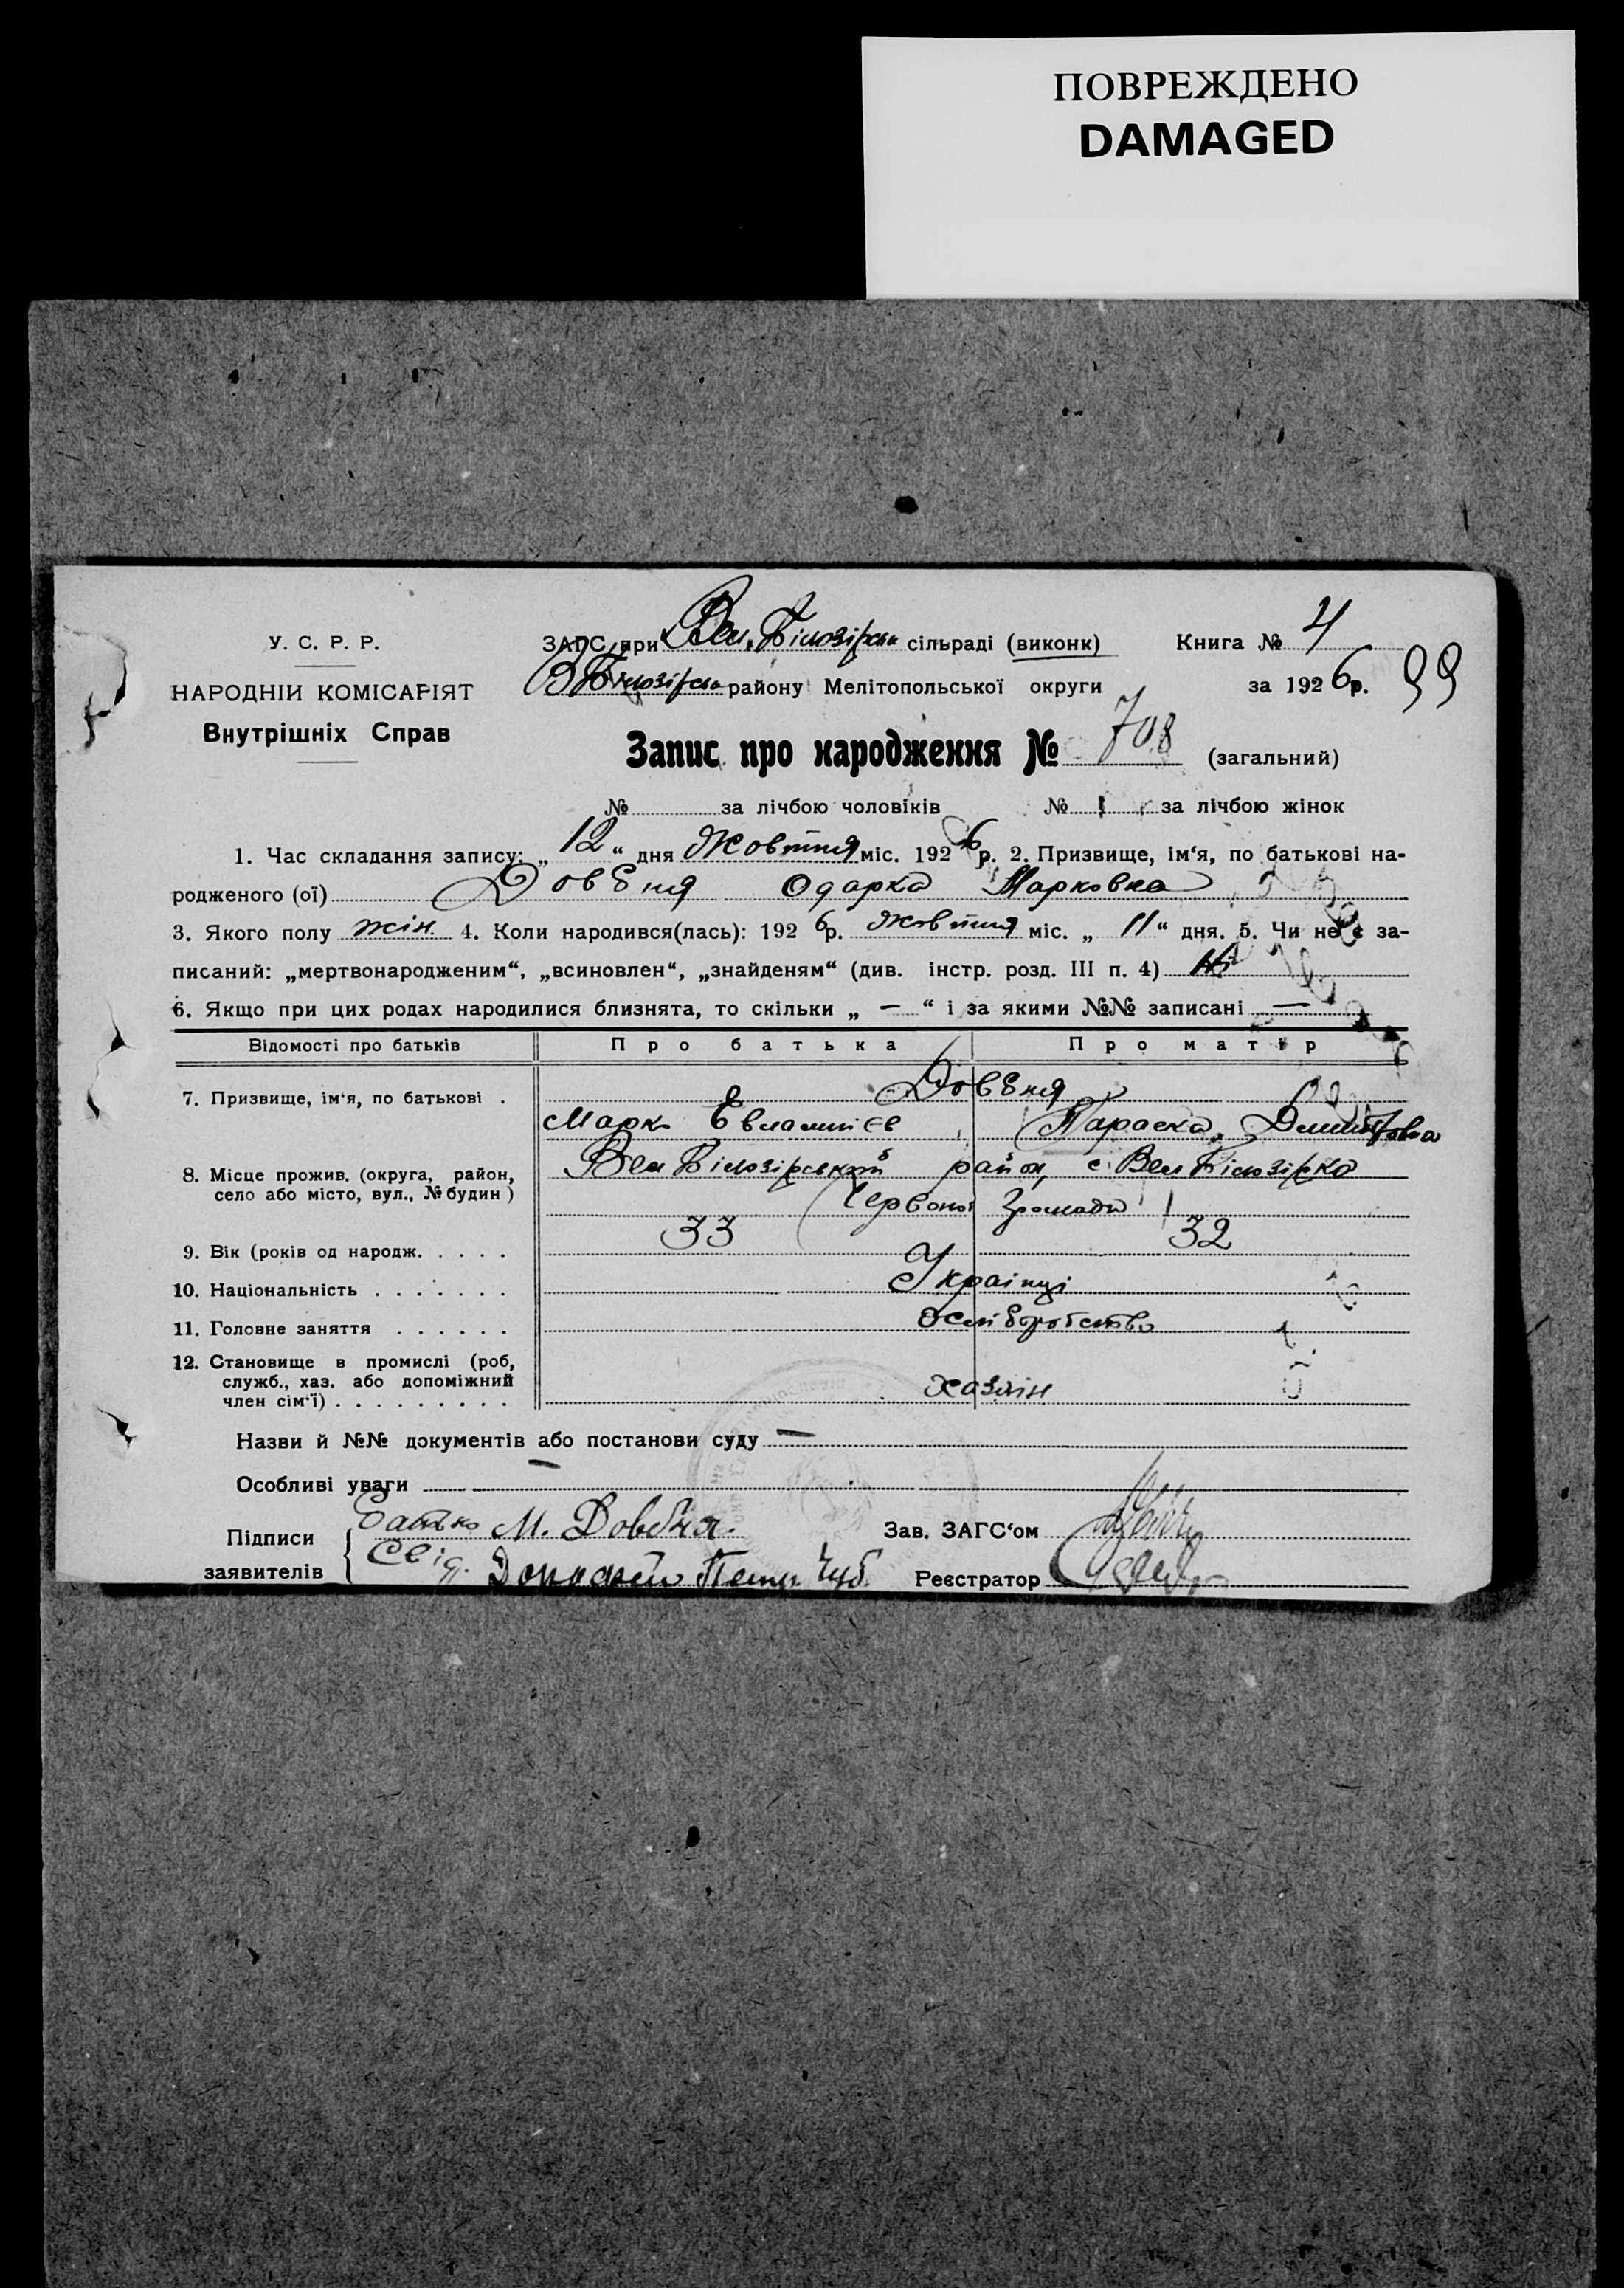 ПОВРЕЖДЕНО
DAMAGED
У. С. Р. Р.
НАРОДНІЙ КОМІСАРІЯТ
Внутрішніх Справ
ЗАГС при Вел. Білозірськ сільраді (виконк) Книга № 4
В Білозірськ району Мелітопольської округи за 1926 р. 99
Запис про народження № 708 (загальний)
№ за лічбою чоловіків № за лічбою жінок
1. Час складання запису: „12“ дня Жовтня міс. 1926 р. 2. Призвище, ім‘я, по батькові на-
родженого (ої) Довбня Одарка Марковна
3. Якого полу жін. 4. Коли народився(лась): 1926 р. Жовтня міс. „11“ дня. 5. Чи не є за-
писаний: „мертвонародженим“, „всиновлен“, „знайденям“ (див. інстр. розд. III п. 4) Ні
6. Якщо при цих родах народилися близнята, то скільки „ — “ і за якими №№ записані —
Відомості про батьків Про батька Про матір
7. Призвище, ім‘я, по батькові . Довбня
Марк Евлампієв Параска Дмитровна
8. Місце прожив. (округа, район, село або місто, вул., № будин) Вел Білозірський район, с. Вел Білозірка
Червоної Громади
9. Вік (років од народж. . . . . 33 32
10. Національність . . . . . . . Українці
11. Головне заняття . . . . . .
12. Становище в промислі (роб,
служб., хаз. або допоміжний
член сім‘ї) . . . . . . . . . хазяін
Назви й №№ документів або постанови суду —
Особливі уваги —
Підписи заявителів { Батько М. Довбня. Зав. ЗАГС‘ом
Свід. Чуб Реєстратор